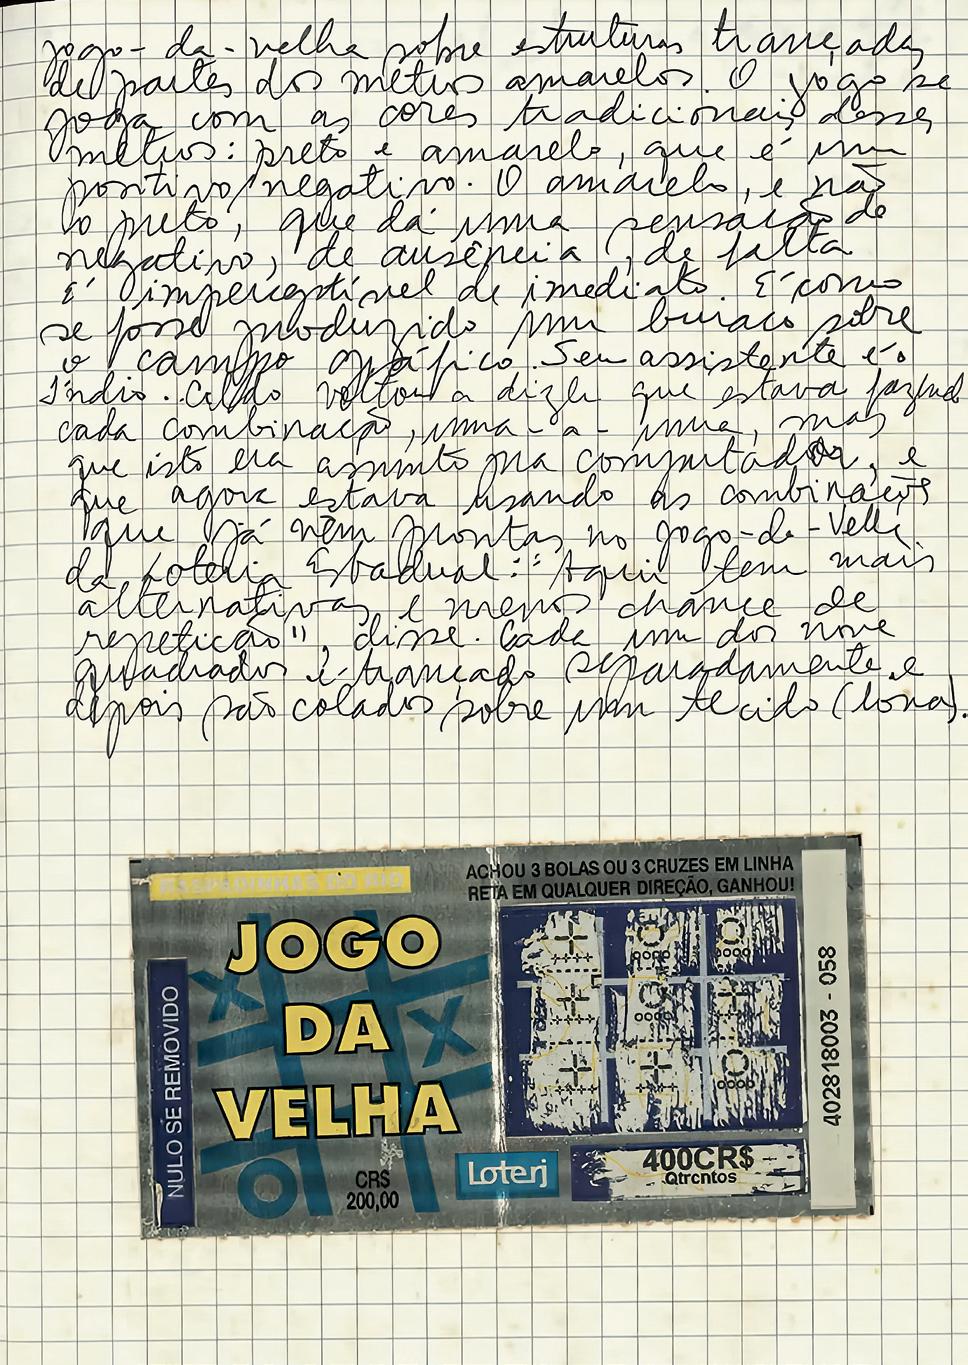 jogo-da-velha sobre estruturas trançadas
de partes dos metros amarelos. O jogo se
joga com as cores tradicionais desses
metros: preto e amarelo, que é um
positivo/negativo. O amarelo, e não
o preto, que dá uma sensação de
negativo, de ausência, de falta
É imperceptível de imediato. É como
se fosse produzido um buraco sobre
o campo gráfico. Seu assistente é o
Índio. Caldo voltou a dizer que estava fazend
cada combinação, uma-a-uma, mas
que isto era assunto pra computador, e
que agora estava usando as combinações
que já vêm prontas no jogo-da-Velha
da Loteria Estadual: "Aqui tem mais
alternativas e menos chance de
repetição", disse. Cada um dos nove
quadrados é trançado separadamente e
depois são colados sobre um tecido (lona).
RASPADINHAS DO RIO
ACHOU 3 BOLAS OU 3 CRUZES EM LINHA
RETA EM QUALQUER DIREÇÃO, GANHOU!
JOGO
DA
VELHA
NULO SE REMOVIDO
CR$
200,00
Loterj
400CR$
Qtrcntos
402818003 - 058